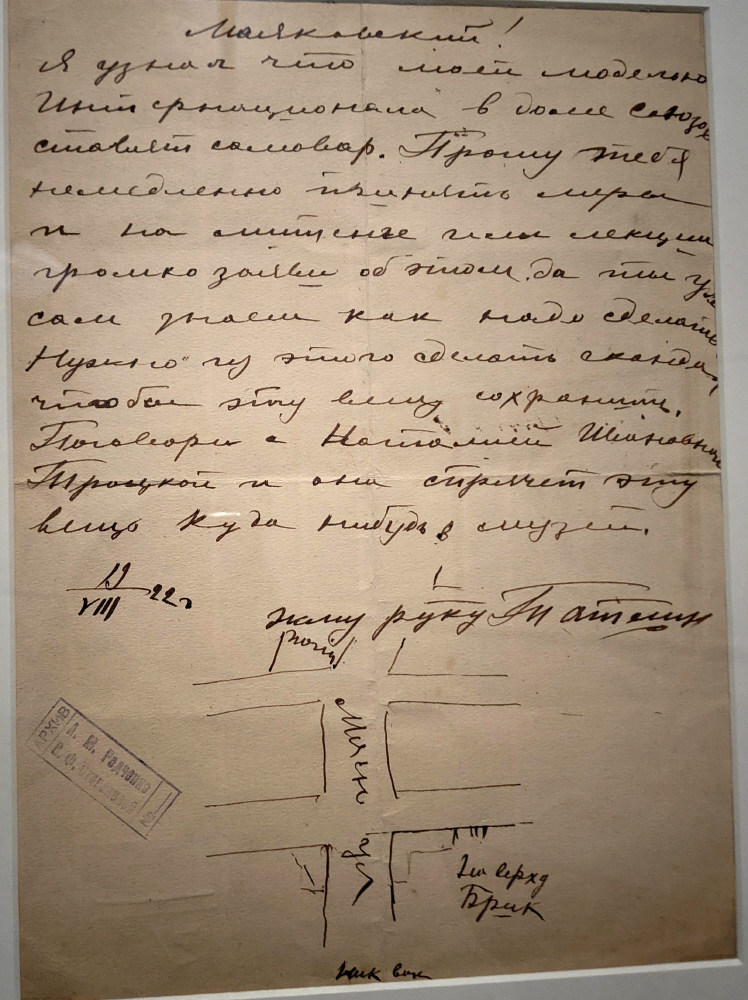 Маяковский!
Я узнал что моей моделью
Интернационала в доме союзов
ставят самовар. Прошу тебя
немедленно принять меры
и на митенге или лекции
громко заяви об этом. да ты уж
сам знаеш как надо сделать
Нужно из этого сделать скандал,
чтобы эту вещь сохранить.
Поговори с Наталией Ивановной
Троцкой и она спрячет эту
вещь куда нибудь в музей.
19
VIII 22г
жму руку Татлин
Мясн
ул
Брик
АРХИВ
А. М. Родченко
В. Ф. Степановой
№